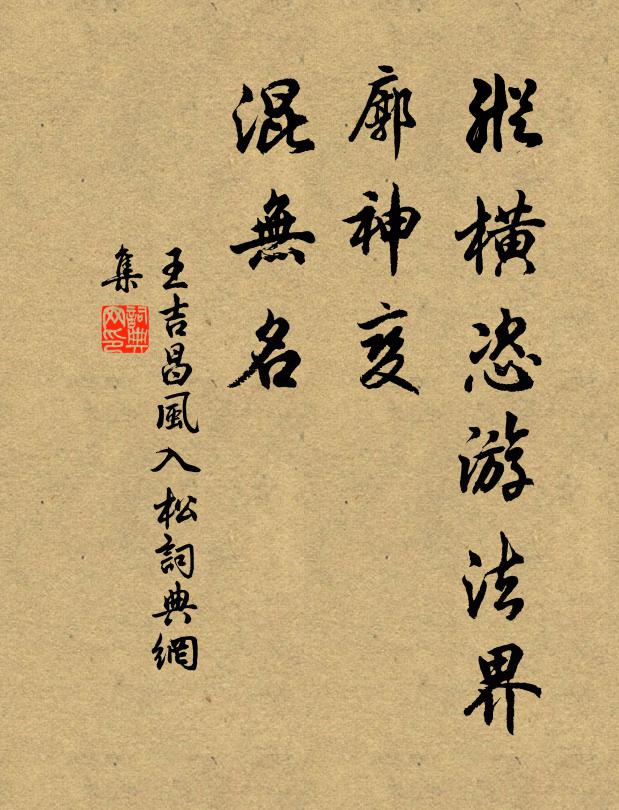 縱橫恣游法界
廓神变
混無名
王吉昌風入松詞典網
集
詞典
网印